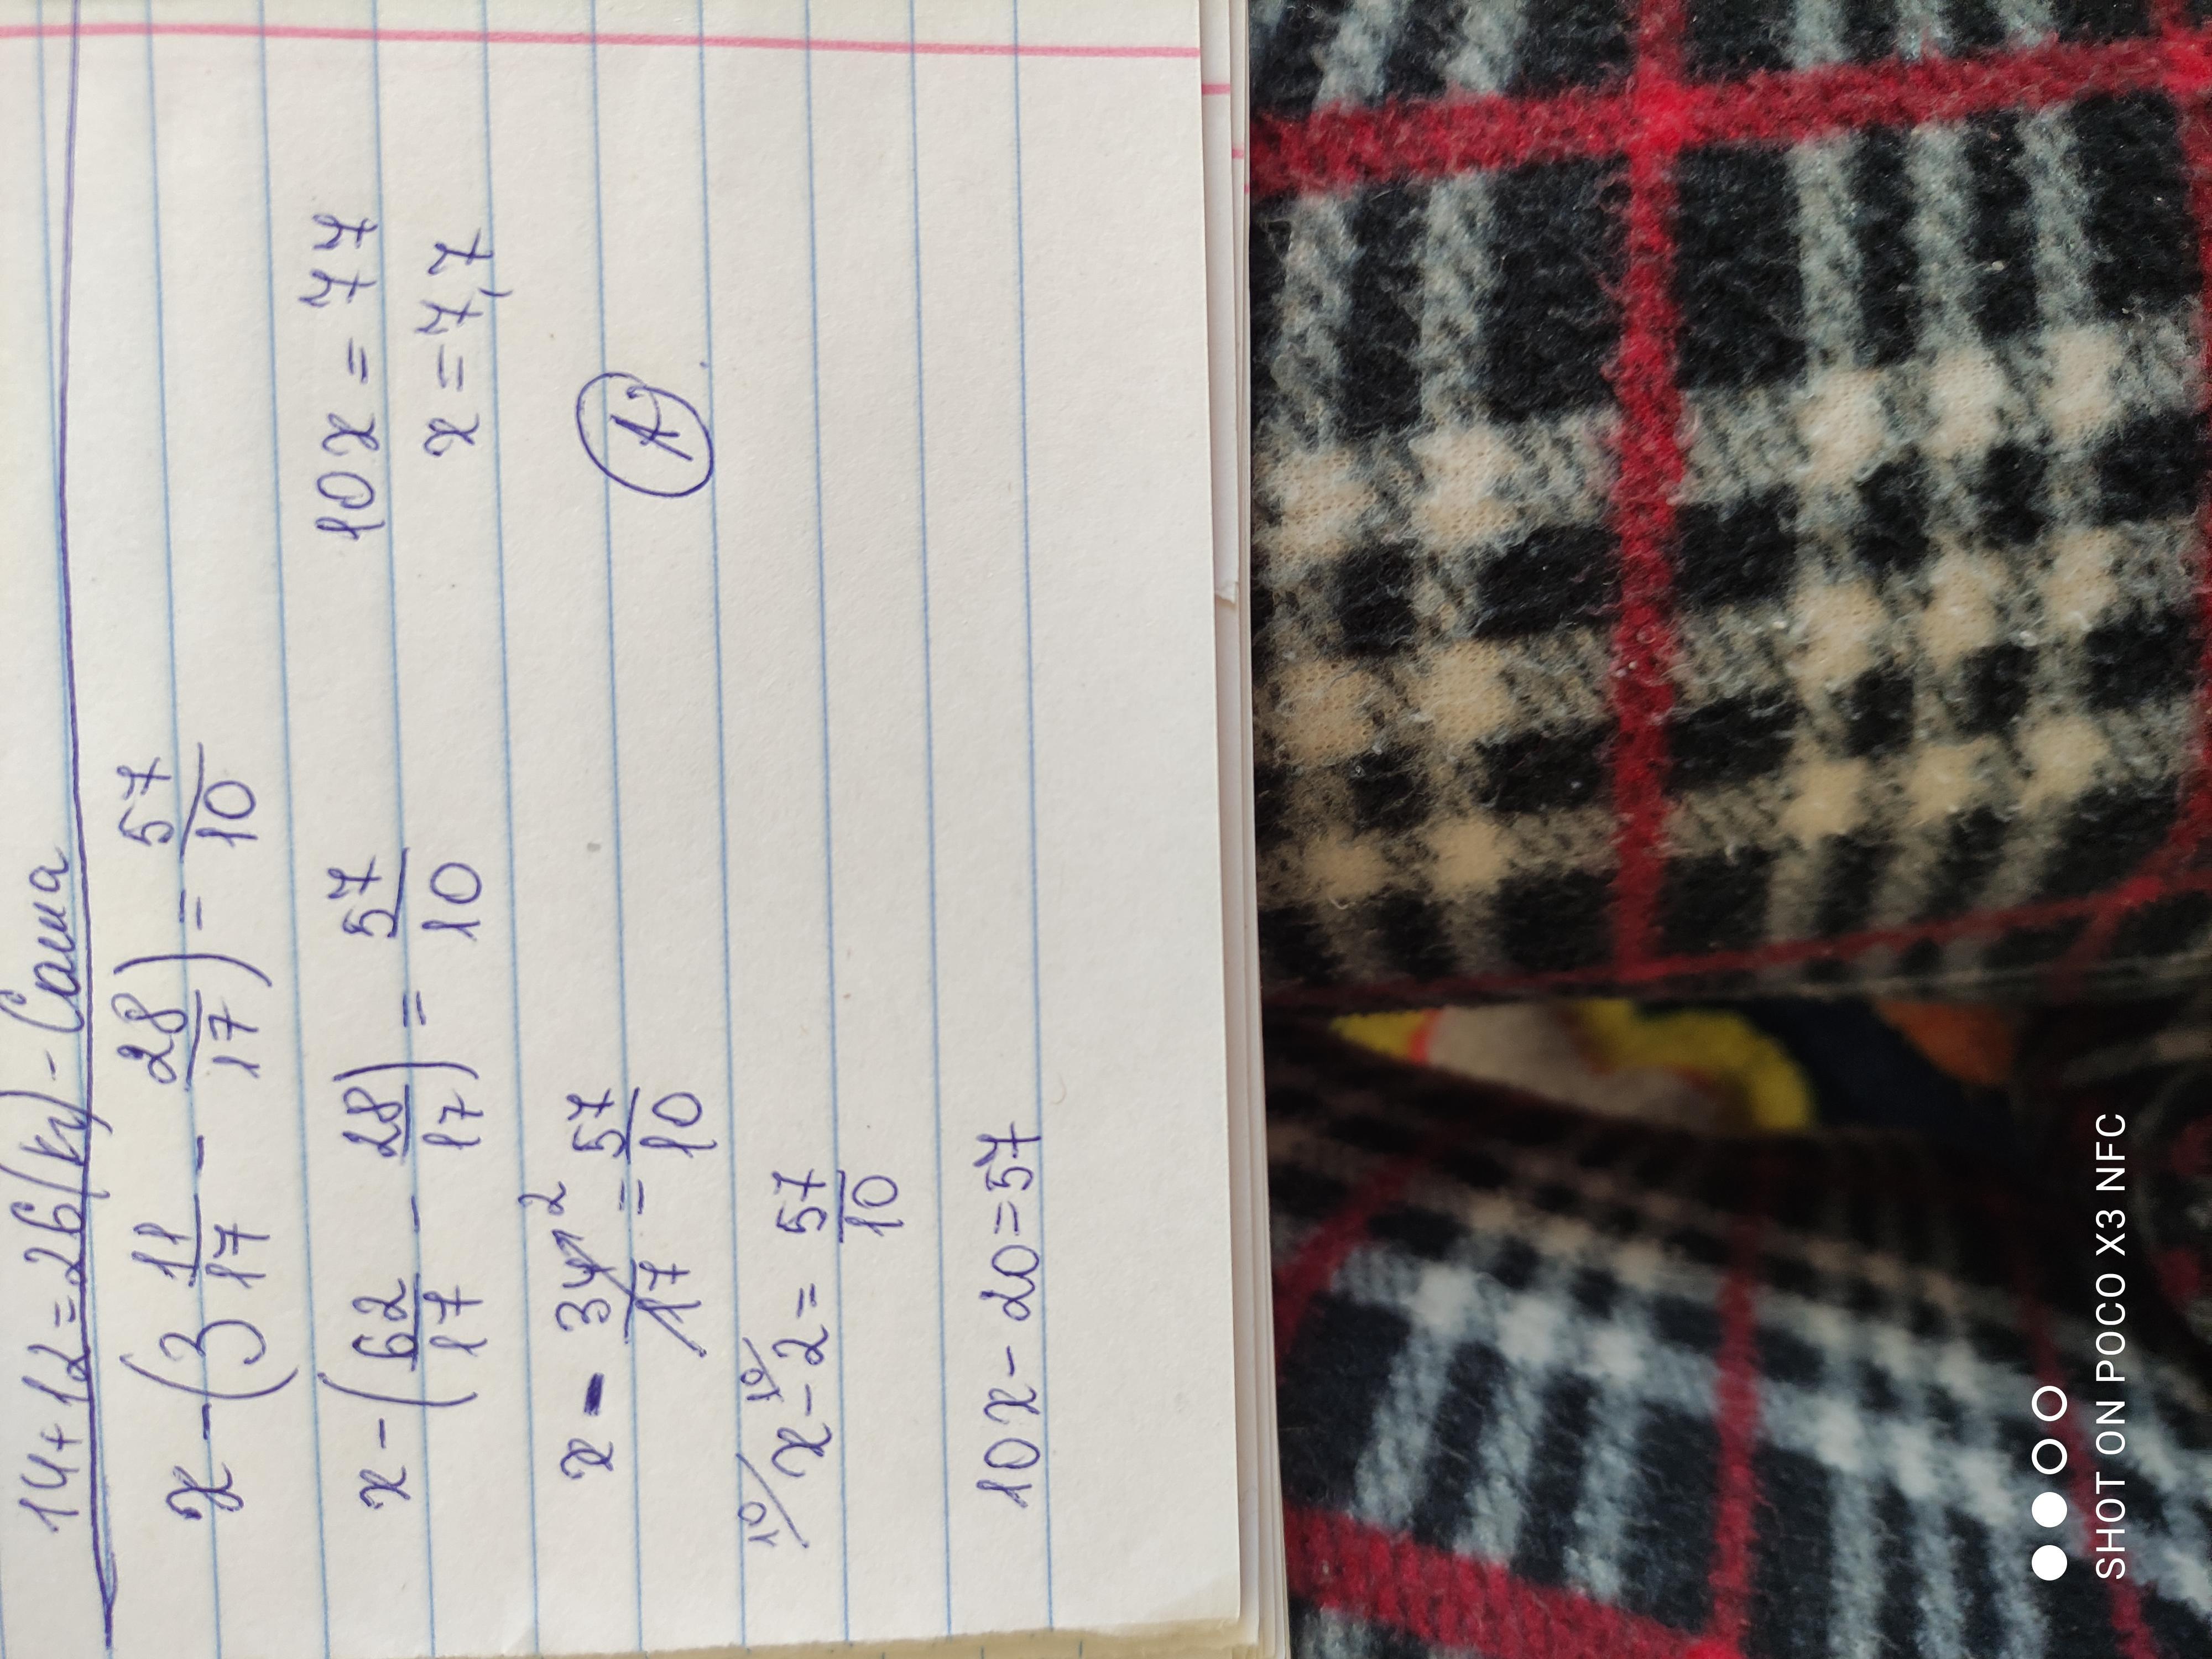 14+12=26(кг) - Саша
x - (3 11/17 - 28/17) = 57/10
x - (62/17 - 28/17) = 57/10
x - 34/17 2 = 57/10
10/ x - 10/ 2 = 57/10
10x - 20 = 57
10x = 77
x = 7,7
А)
SHOT ON POCO X3 NFC